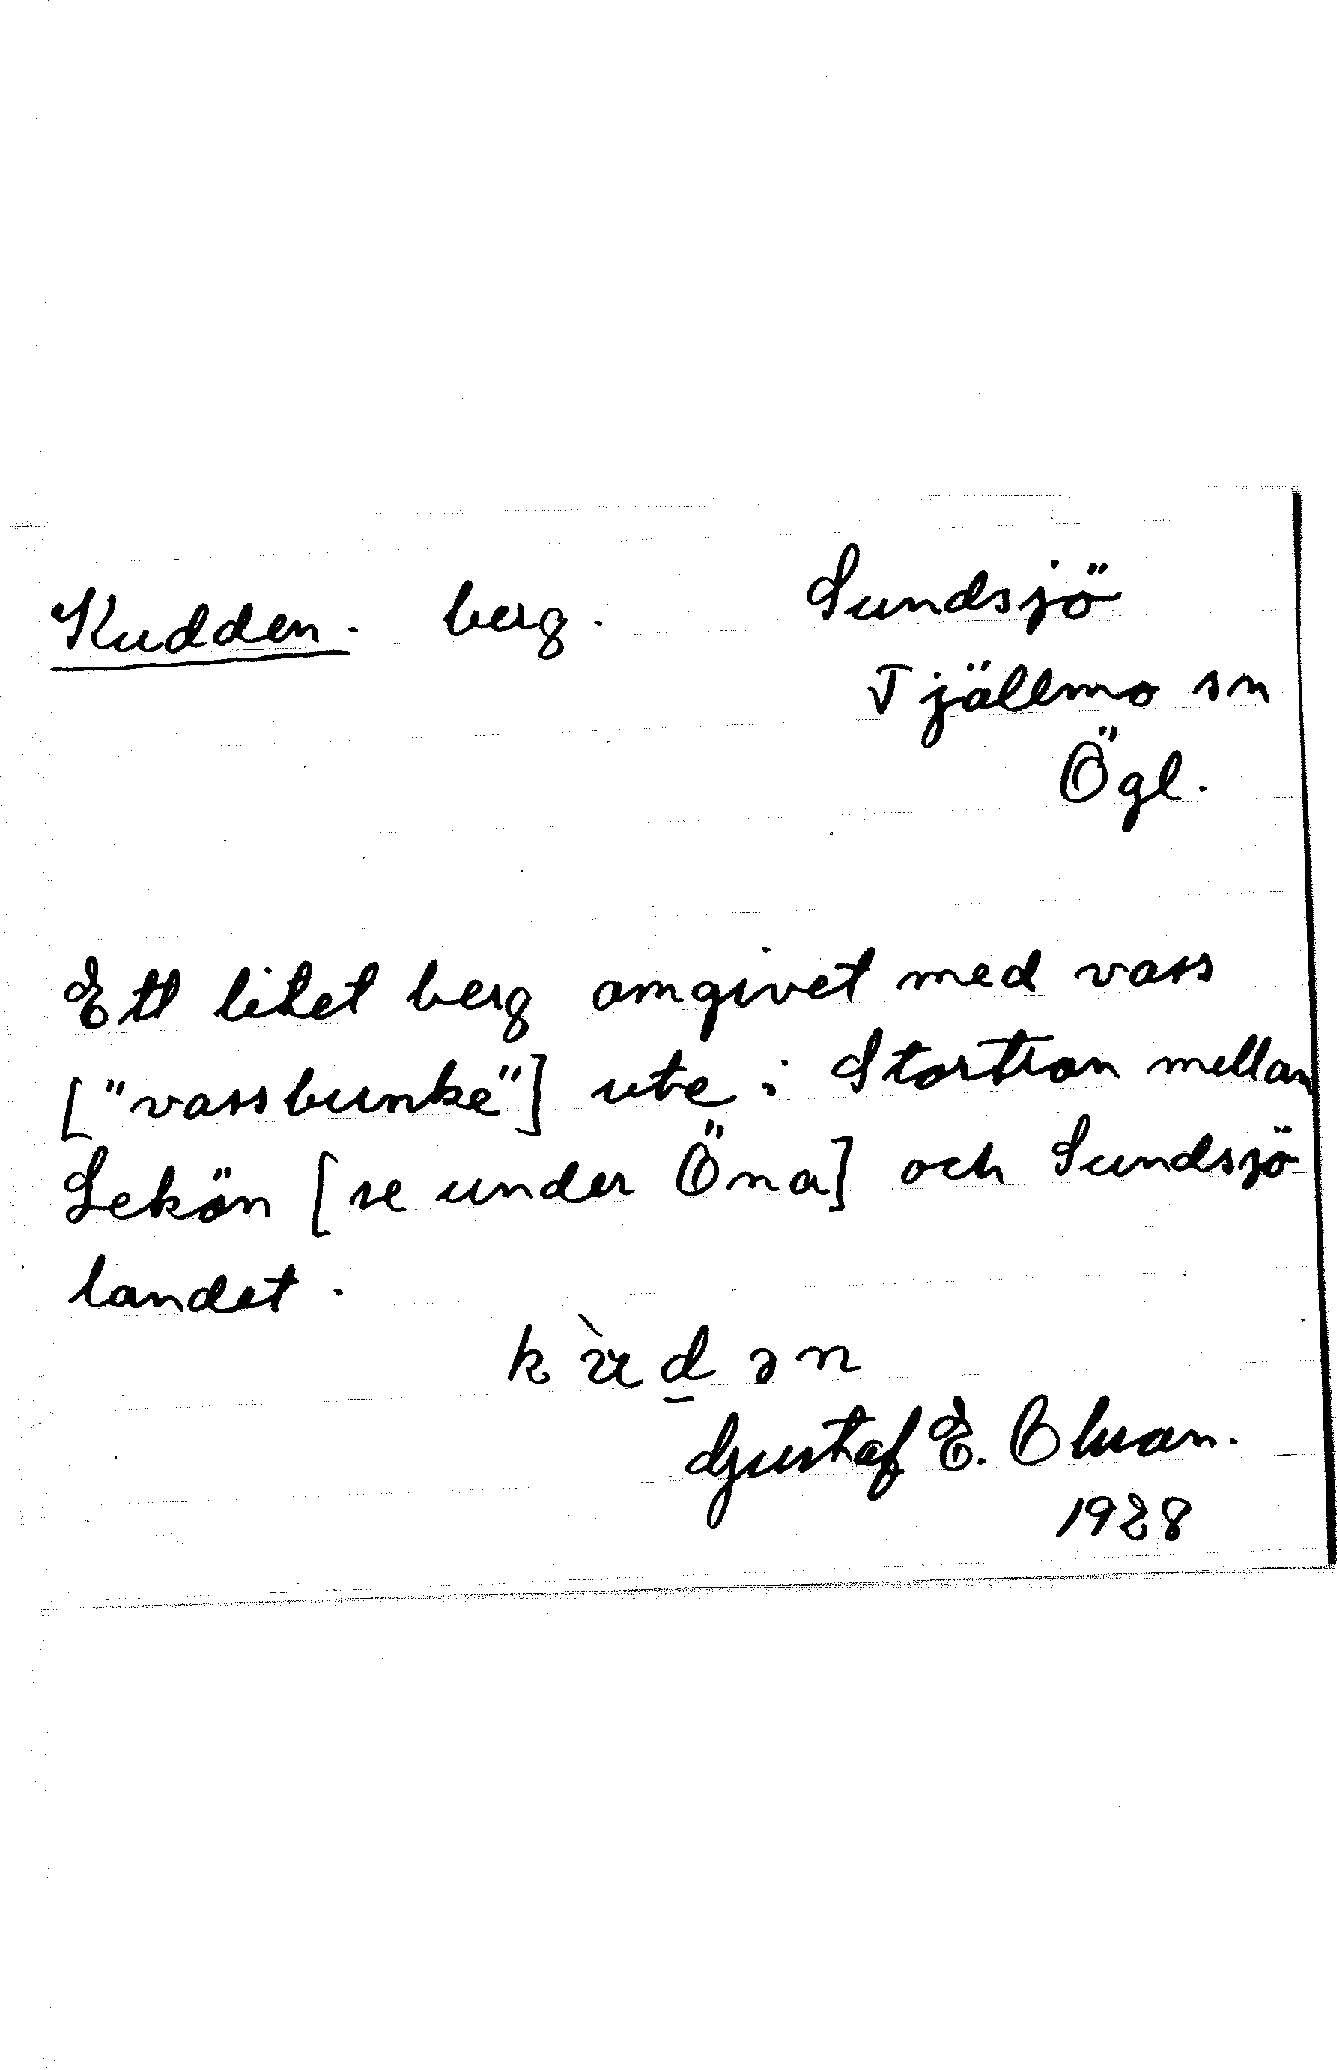 Kudden. berg. Sundsjö
Tjällmo sn
Ögl.
Ett litet berg omgivet med vass
["vassbunke"] ute i Stortron mellan
Lekön [se under Öna] och Sundsjö
landet.
Gustaf E. Olsson.
1928